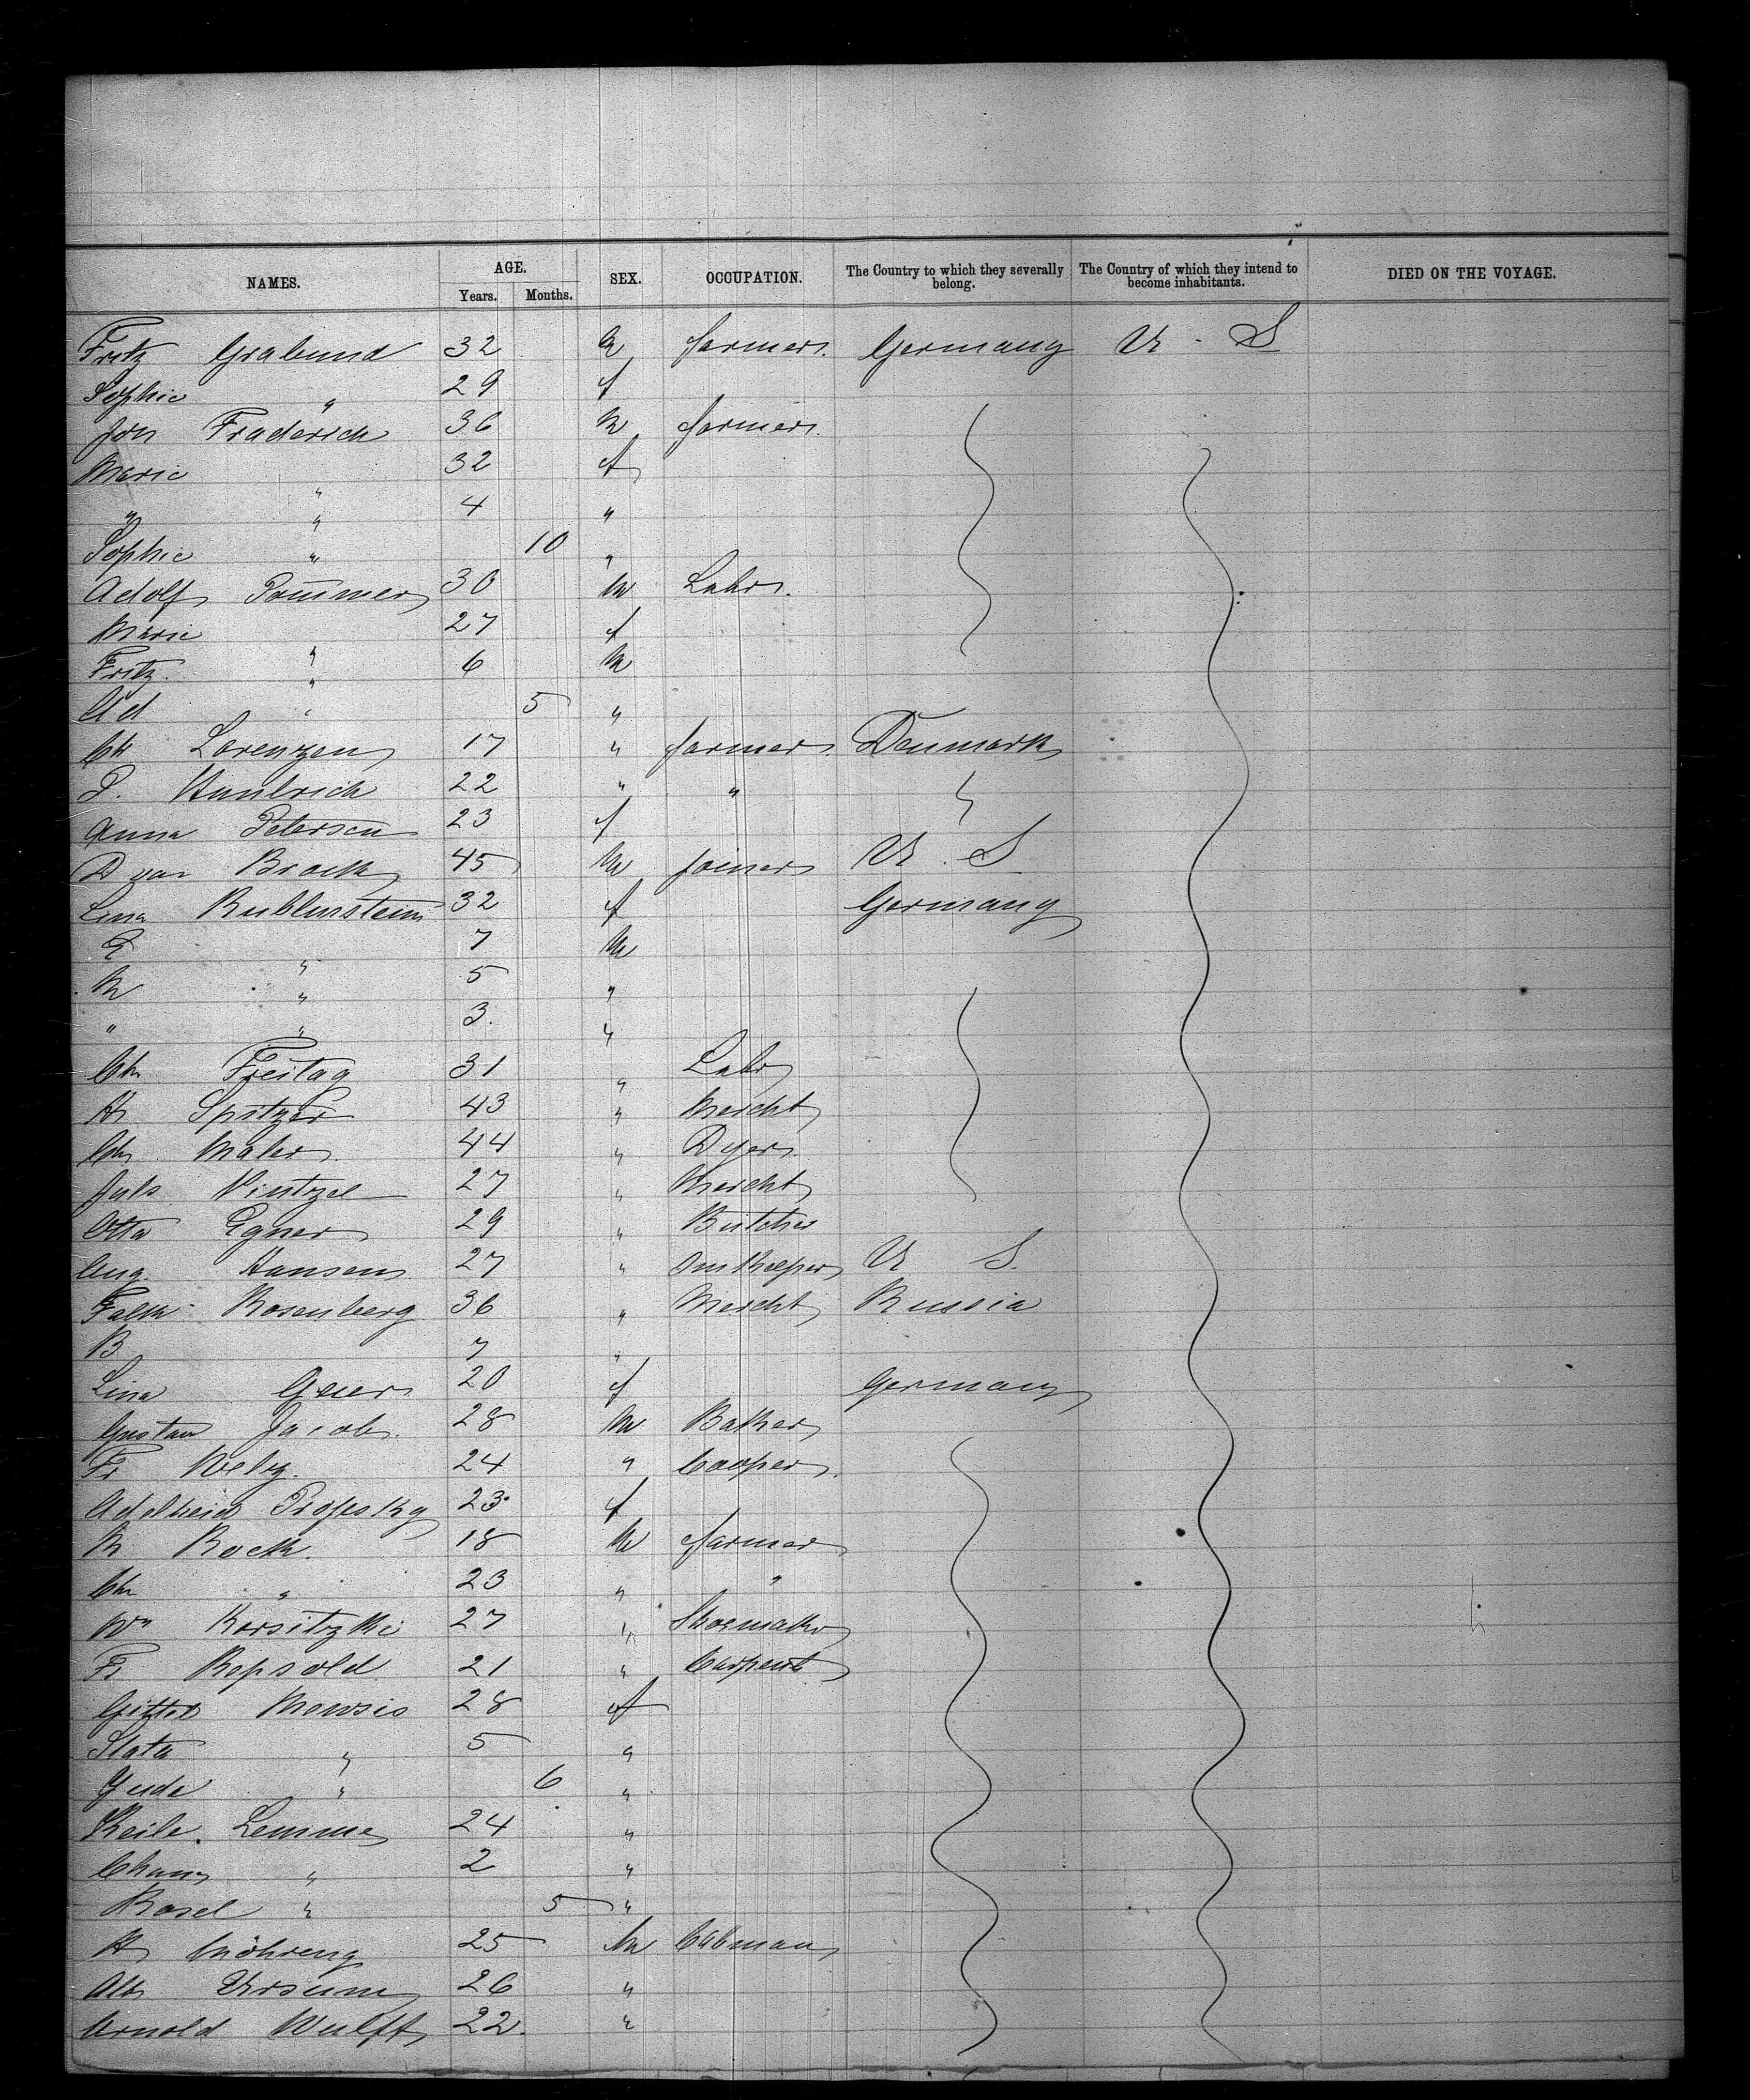 NAMES. AGE. Years. Months. SEX. OCCUPATION. The Country to which they severally belong. The Country of which they intend to become inhabitants. DIED ON THE VOYAGE.
Fritz Grabund 32 m farmer Germany U. S
Sophie " 29 f
Joh Fraderich 36 m farmer
Marie " 32 f
" " 4 "
Sophie " 10 "
Adolf Pommer 30 m Labr.
Marie " 27 f
Fritz " 6 m
Ad " 5 "
Ch Lorenzen 17 " farmer Denmark
P. 22 " " "
Anna Petersen 23 f
D van Brock 45 m joiner U. S
Lina 32 f Germany
E " 7 m
M " 5 "
" " 3. "
Ch Freitag 31 " Labr
H Spitzer 43 " Mercht
Ch Maler 44 " Dyer
Juls Vintzel 27 " Mercht
Otto Egner 29 " Butcher
Aug. Hansen 27 " U S.
Falk Rosenberg 36 " Mercht Russia
B 7 "
Lina Geier 20 f Germany
Gustav Jacob 28 m Baker
Fr Welz 24 " Cooper
Adelheid 23 f
M Rock 18 m farmer
Ch " 23 " "
Wm Korsitzki 27 " Shoemaker
Fr Repsold 21 " Carpent
Gittel 28 f
Slata " 5 "
Jude " 6 "
Keile Lemme 24 "
Chane " 2 "
Rosel " 5 "
H Möhreng 25 m Cabman
Alb Ursum 26 "
Arnold Wulff 22. "